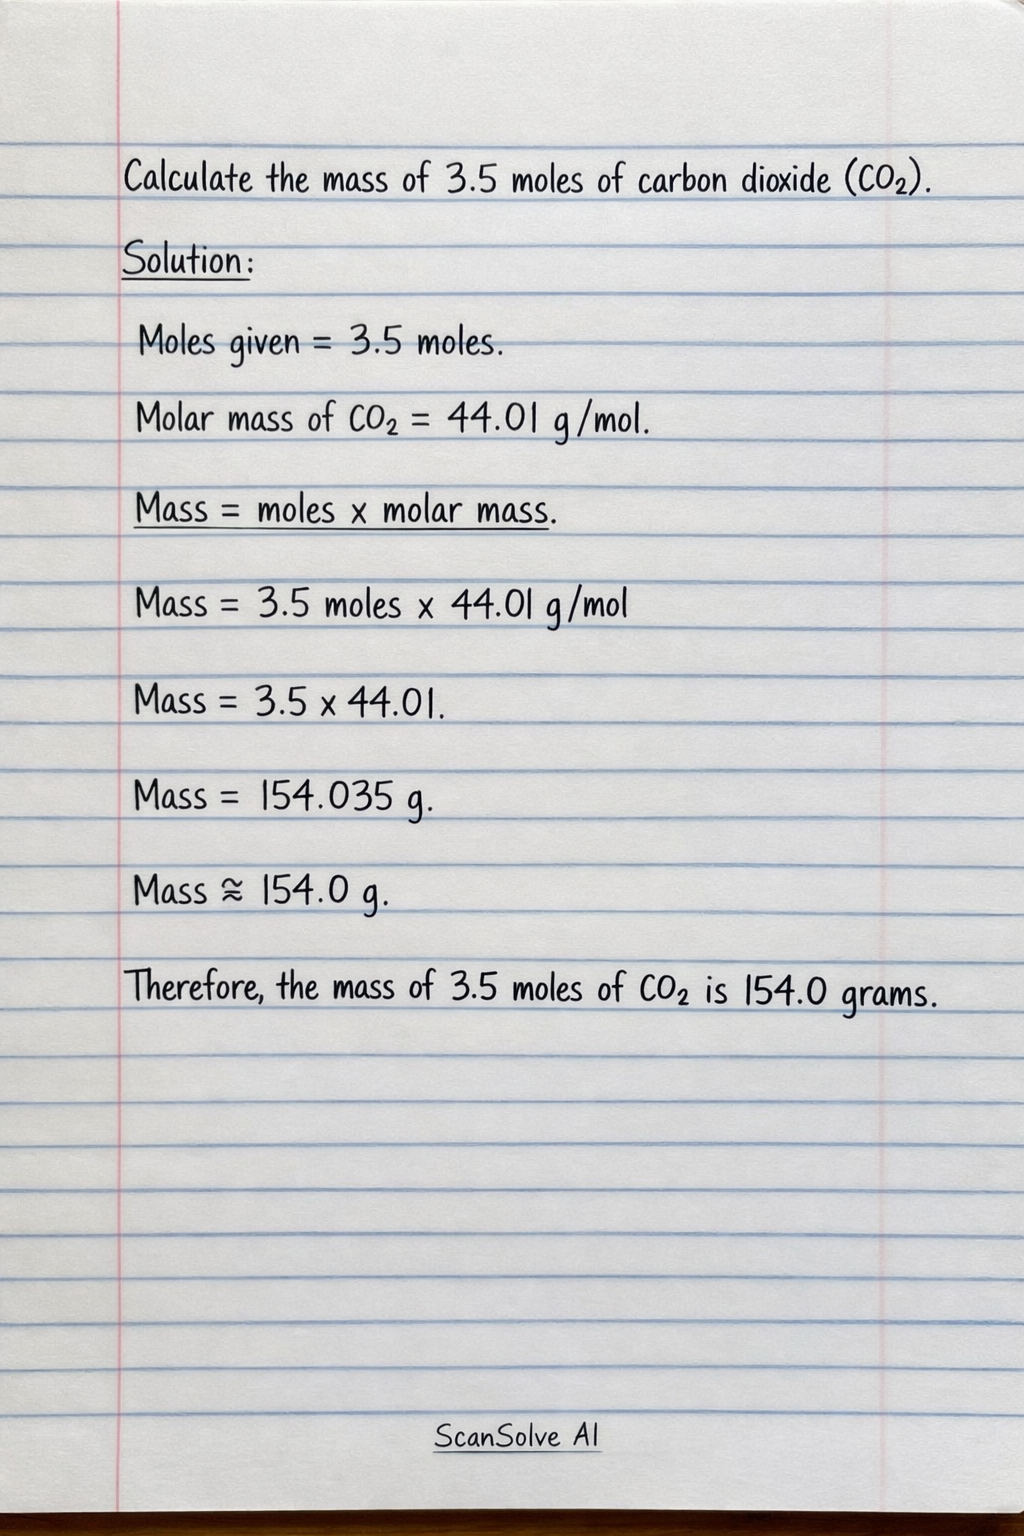 Calculate the mass of 3.5 moles of carbon dioxide (CO₂).
Solution:
Moles given = 3.5 moles.
Molar mass of CO₂ = 44.01 g/mol.
Mass = moles x molar mass.
Mass = 3.5 moles x 44.01 g/mol
Mass = 3.5 x 44.01.
Mass = 154.035 g.
Mass ≊ 154.0 g.
Therefore, the mass of 3.5 moles of CO₂ is 154.0 grams.
ScanSolve AI